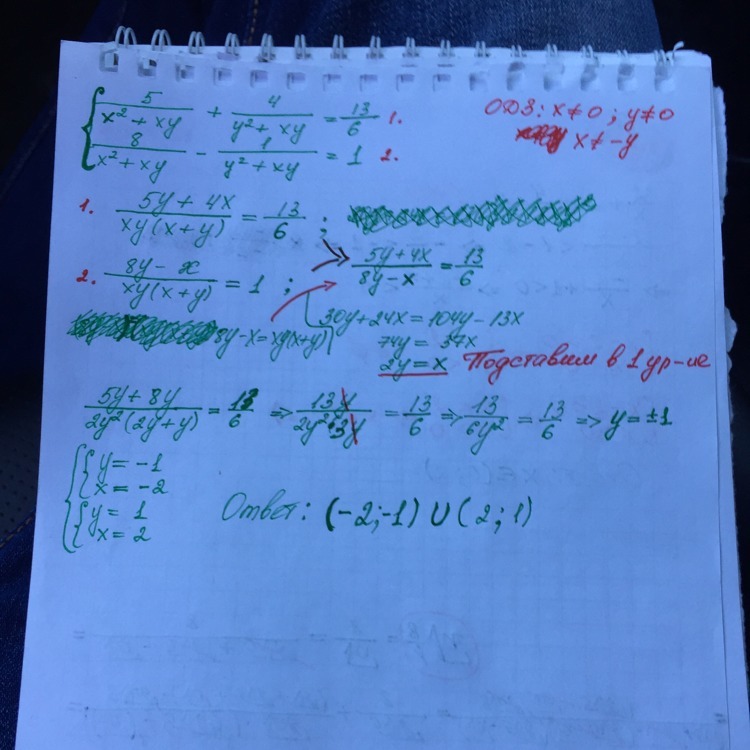 5/(x² + xy) + 4/(y² + xy) = 13/6 1.
ОДЗ: x ≠ 0 ; y ≠ 0
x ≠ -y
8/(x² + xy) - 1/(y² + xy) = 1 2.
1. (5y + 4x)/(xy(x+y)) = 13/6 ;
2. (8y - x)/(xy(x+y)) = 1 ;
(5y+4x)/(8y-x) = 13/6
8y-x=xy(x+y)
30y+24x = 104y - 13x
74y = 37x
2y = x Подставим в 1 ур-ие
(5y + 8y)/(2y²(2y+y)) = 13/6 => 13y/(2y²·3y) = 13/6 => 13/6y² = 13/6 => y = ±1
y = -1
x = -2
y = 1
x = 2
Ответ: (-2;-1) U (2;1)